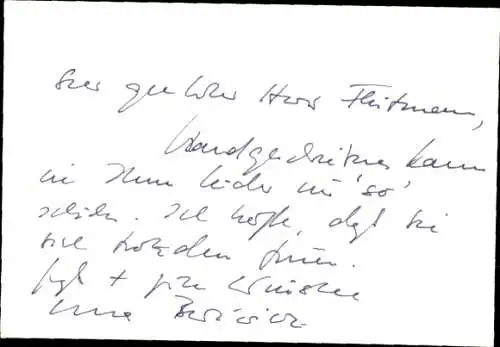 Sehr geehrter Herr Flitmann,
Handgeschriebenes kann
ich Ihnen leider nur 'so'
schicken. Ich hoffe, daß Sie
sich trotzdem freuen.
Gruß + gute Wünsche